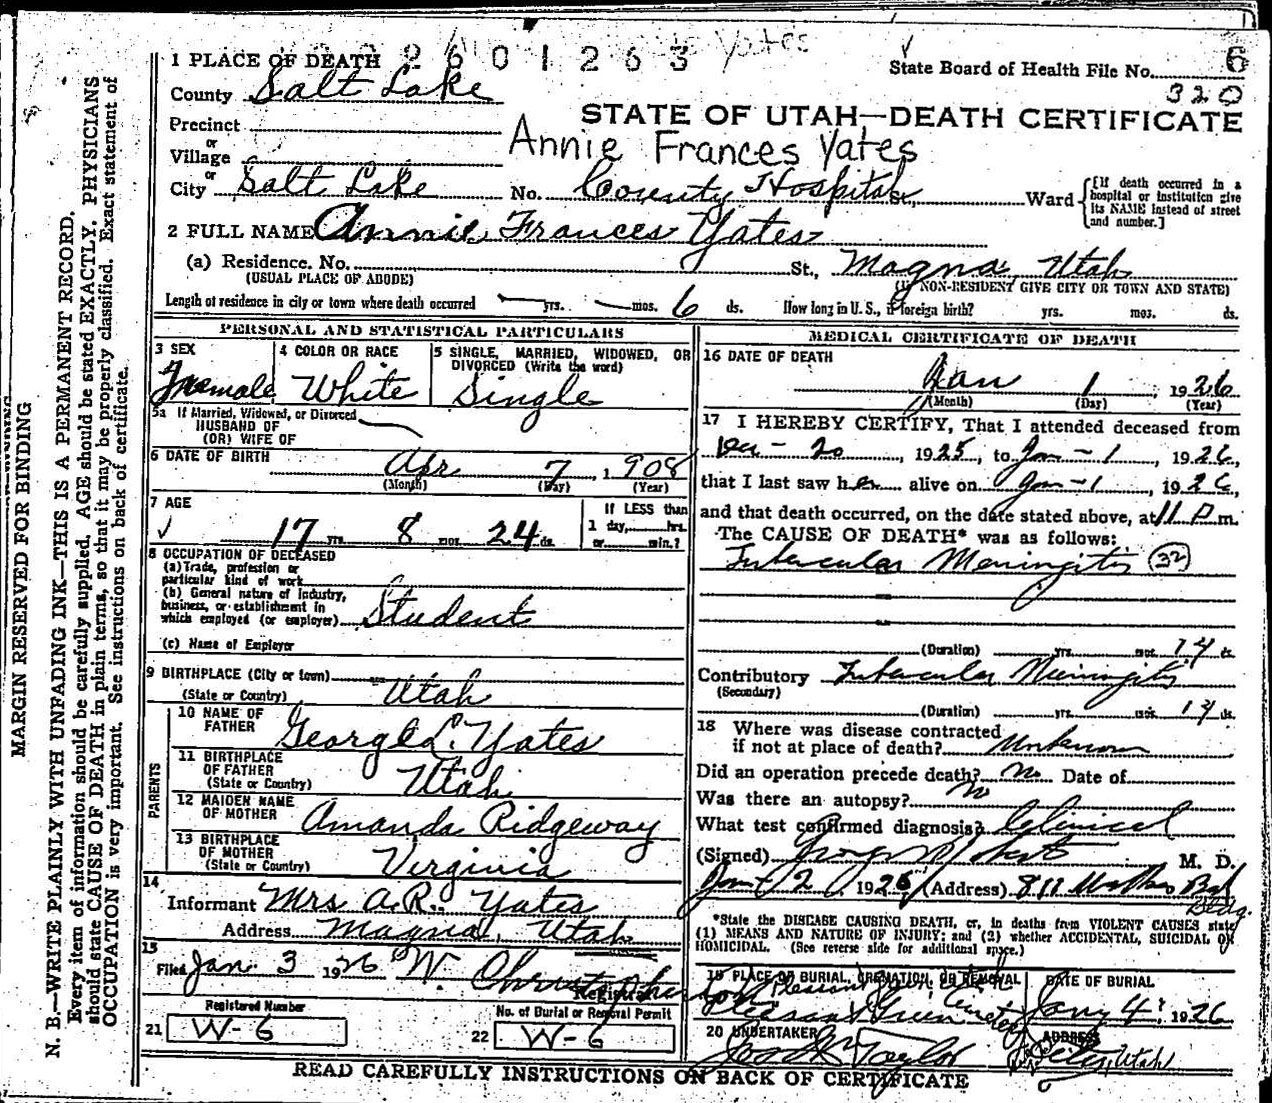 2601263 Yates
1 PLACE OF DEATH
State Board of Health File No. 6
320
County Salt Lake
STATE OF UTAH—DEATH CERTIFICATE
Precinct
or
Village
Annie Frances Yates
or
City Salt Lake No. County Hospital, Ward
[If death occurred in a hospital or institution give its NAME instead of street and number.]
2 FULL NAME Annie Frances Yates
(a) Residence. No. St., Magna, Utah
(USUAL PLACE OF ABODE)
(If NON-RESIDENT GIVE CITY OR TOWN AND STATE)
Length of residence in city or town where death occurred yrs. mos. 6 ds. How long in U.S., if foreign birth? yrs. mos. ds.
PERSONAL AND STATISTICAL PARTICULARS
3 SEX
Female
4 COLOR OR RACE
White
5 SINGLE, MARRIED, WIDOWED, OR DIVORCED (Write the word)
Single
5a If Married, Widowed, or Divorced
HUSBAND OF
(OR) WIFE OF
6 DATE OF BIRTH
Apr 7, 1908
(Month) (Day) (Year)
7 AGE
17 yrs. 8 mos. 24 ds.
If LESS than
1 day, hrs.
or min.?
8 OCCUPATION OF DECEASED
(a) Trade, profession or
particular kind of work
(b) General nature of industry,
business, or establishment in
which employed (or employer) Student
(c) Name of Employer
9 BIRTHPLACE (City or town) Utah
(State or Country)
PARENTS
10 NAME OF
FATHER George L. Yates
11 BIRTHPLACE
OF FATHER
(State or Country) Utah
12 MAIDEN NAME
OF MOTHER Amanda Ridgeway
13 BIRTHPLACE
OF MOTHER
(State or Country) Virginia
14
Informant Mrs A.R. Yates
Address Magna, Utah
15
Filed Jan 3 1926 W. Christopher
Registrar
Registered Number
21 W-6
No. of Burial or Removal Permit
22 W-6
MEDICAL CERTIFICATE OF DEATH
16 DATE OF DEATH
Jan 1, 1926
(Month) (Day) (Year)
17 I HEREBY CERTIFY, That I attended deceased from
Dec - 20, 1925, to Jan - 1, 1926,
that I last saw her alive on Jan - 1, 1926,
and that death occurred, on the date stated above, at 11 P m.
The CAUSE OF DEATH* was as follows:
Tubercular Meningitis (32)
(Duration) yrs. mos. 14 ds.
Contributory Tubercular Meningitis
(Secondary)
(Duration) yrs. mos. 14 ds.
18 Where was disease contracted
if not at place of death? Unknown
Did an operation precede death? No Date of
Was there an autopsy? No
What test confirmed diagnosis? Clinical
(Signed) M. D.
Jan 2, 1926 (Address) 811 Bldg.
*State the DISEASE CAUSING DEATH, or, in deaths from VIOLENT CAUSES state
(1) MEANS AND NATURE OF INJURY; and (2) whether ACCIDENTAL, SUICIDAL OR
HOMICIDAL. (See reverse side for additional space.)
19 PLACE OF BURIAL, CREMATION, OR REMOVAL
Pleasant Green Cemetery
DATE OF BURIAL
Jany 4, 1926
20 UNDERTAKER
Taylor
ADDRESS
City, Utah
READ CAREFULLY INSTRUCTIONS ON BACK OF CERTIFICATE
MARGIN RESERVED FOR BINDING
N. B.—WRITE PLAINLY WITH UNFADING INK—THIS IS A PERMANENT RECORD.
Every item of information should be carefully supplied. AGE should be stated EXACTLY. PHYSICIANS
should state CAUSE OF DEATH in plain terms, so that it may be properly classified. Exact statement of
OCCUPATION is very important. See instructions on back of certificate.